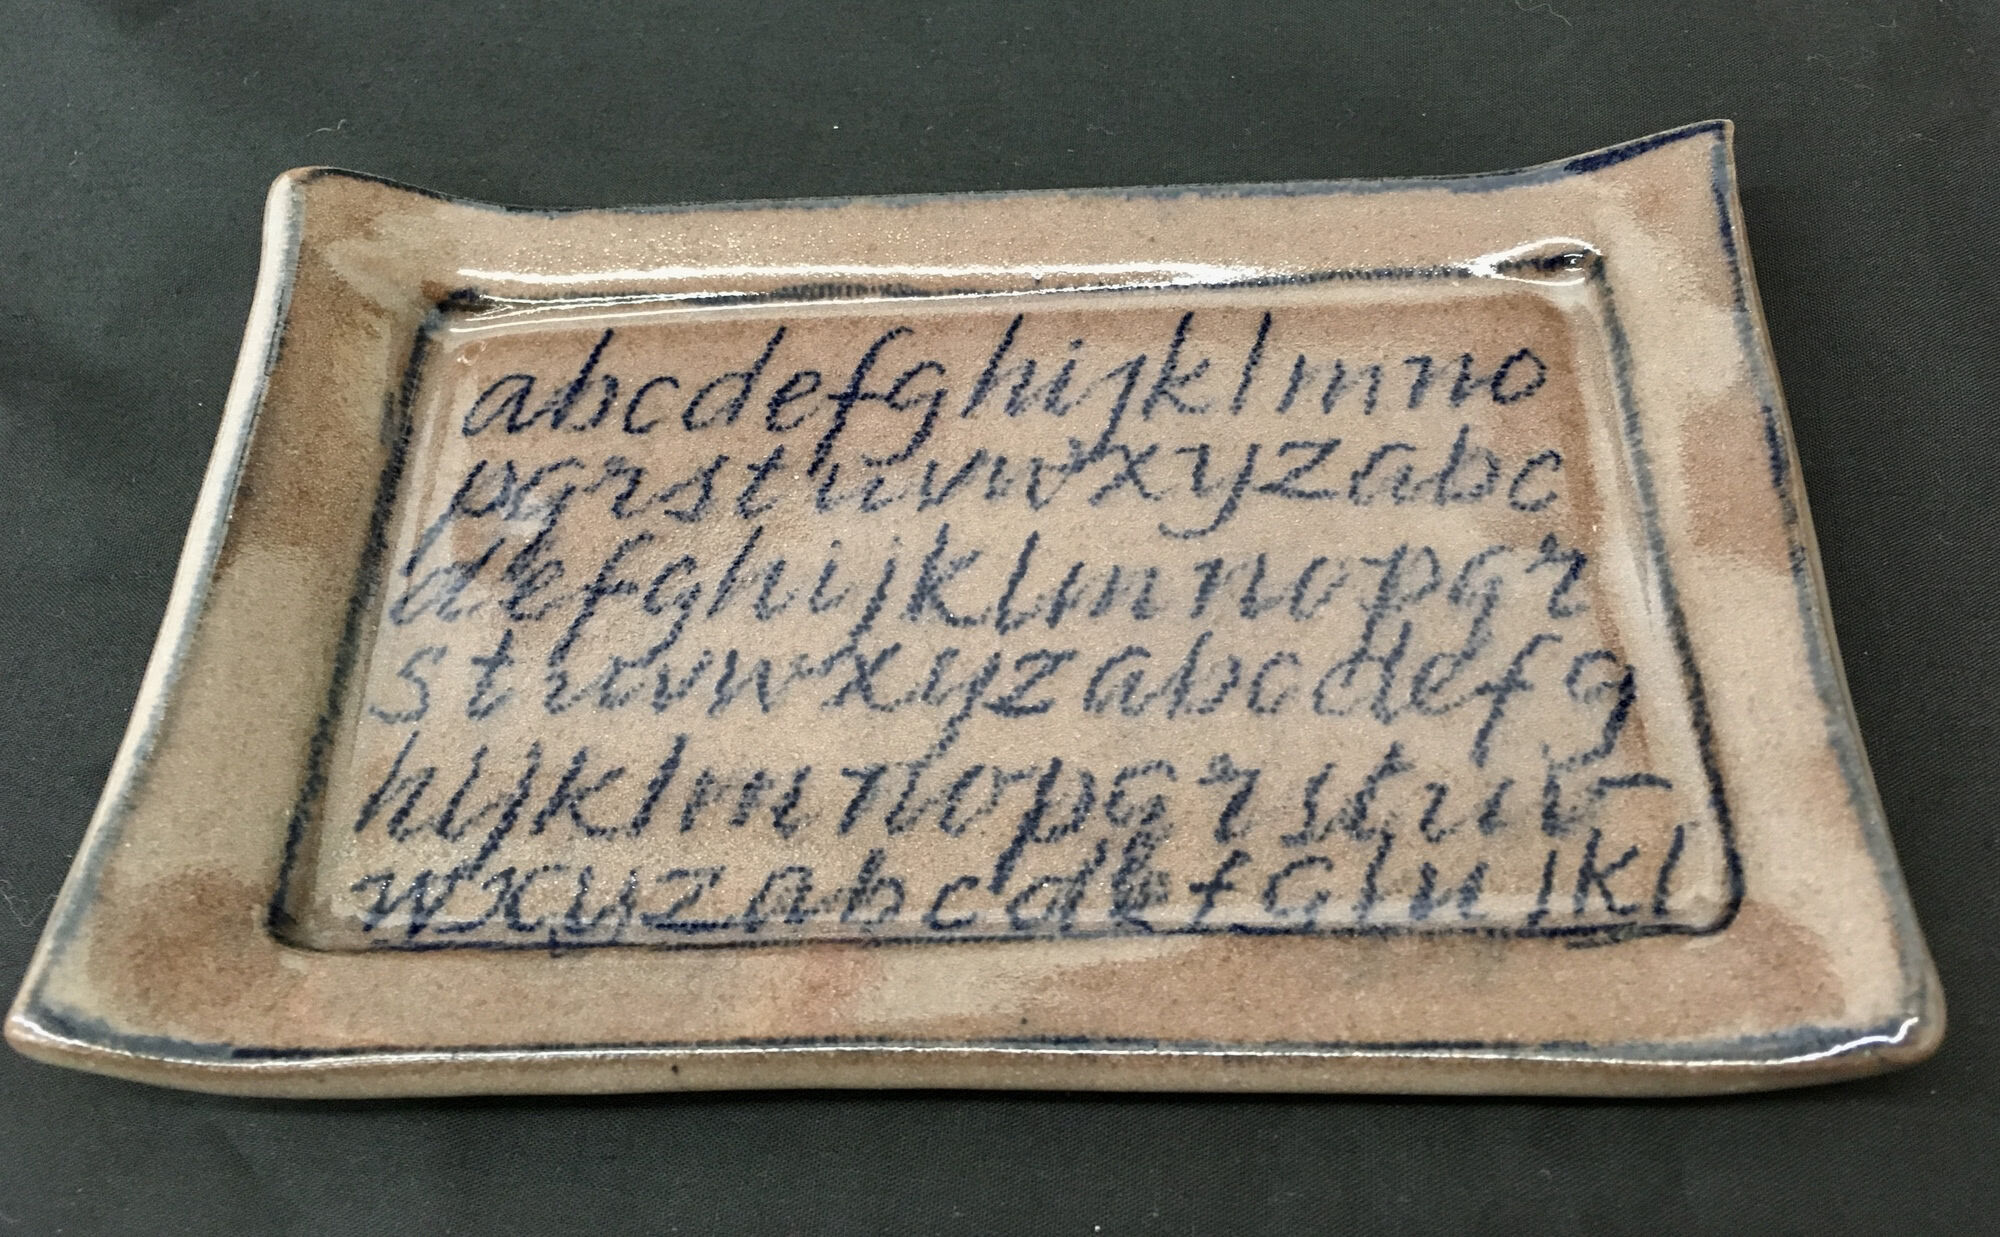 abcdefghijklmno
pqrstuvwxyzabc
defghijklmnopqr
stuvwxyzabcdefg
hijklmnopqrstuv
wxyzabcdefghijkl